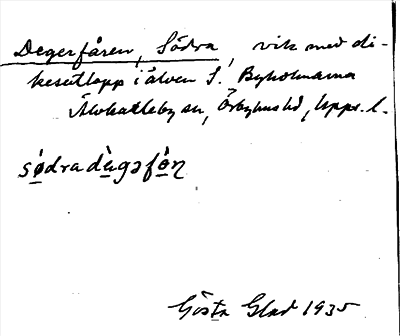 Degerfåren, Södra, vik med di-
kesutlopp i älven S. Byholmarna
Älvkarleby sn, Örbyhus hd, Upps. l.
södradegəfo̱ṇ
Gösta Glad 1935